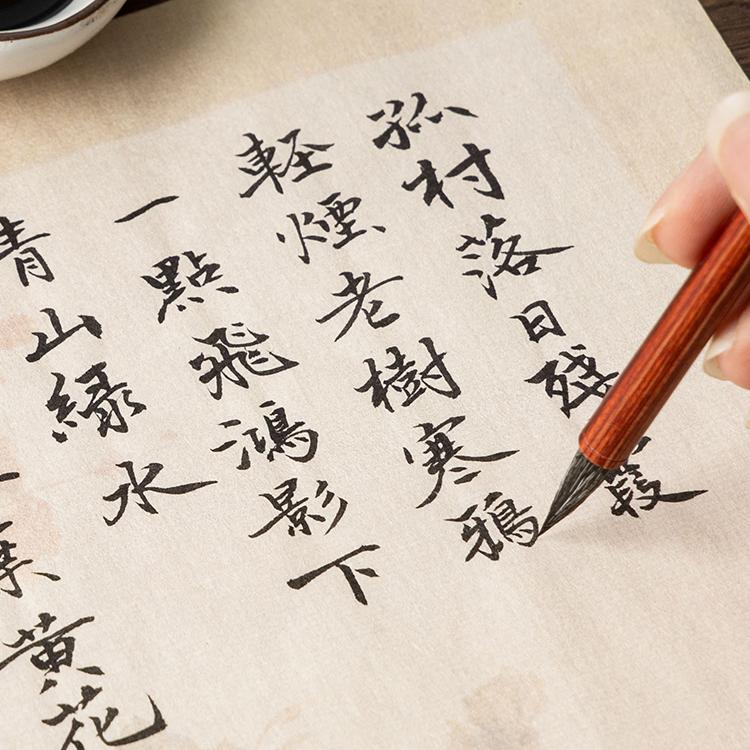 孤村落日殘霞
軽煙老樹寒鴉
一點飛鴻影下
青山緑水
葉黄花